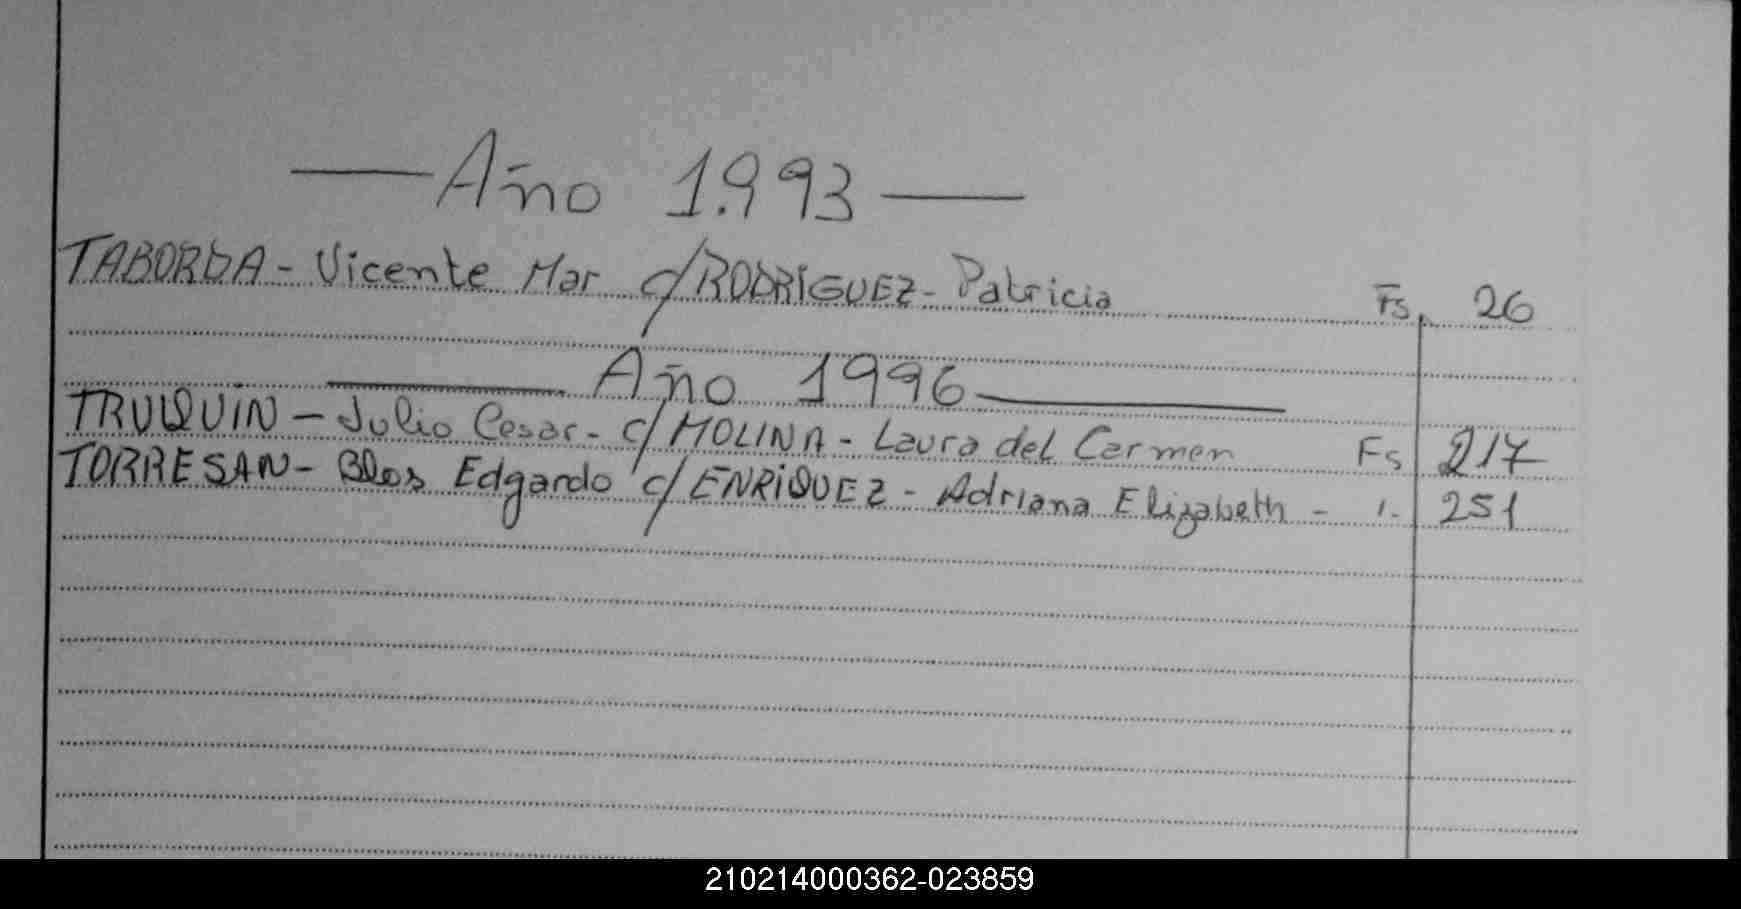 — Año 1.993 —
TABORDA - Vicente Mar c/ RODRIGUEZ - Patricia Fs. 26
— Año 1996 —
TRUQUIN - Julio Cesar - c/ MOLINA - Laura del Carmen Fs 217
TORRESAN - Blas Edgardo c/ ENRIQUEZ - Adriana Elizabeth - 1. 251
210214000362-023859